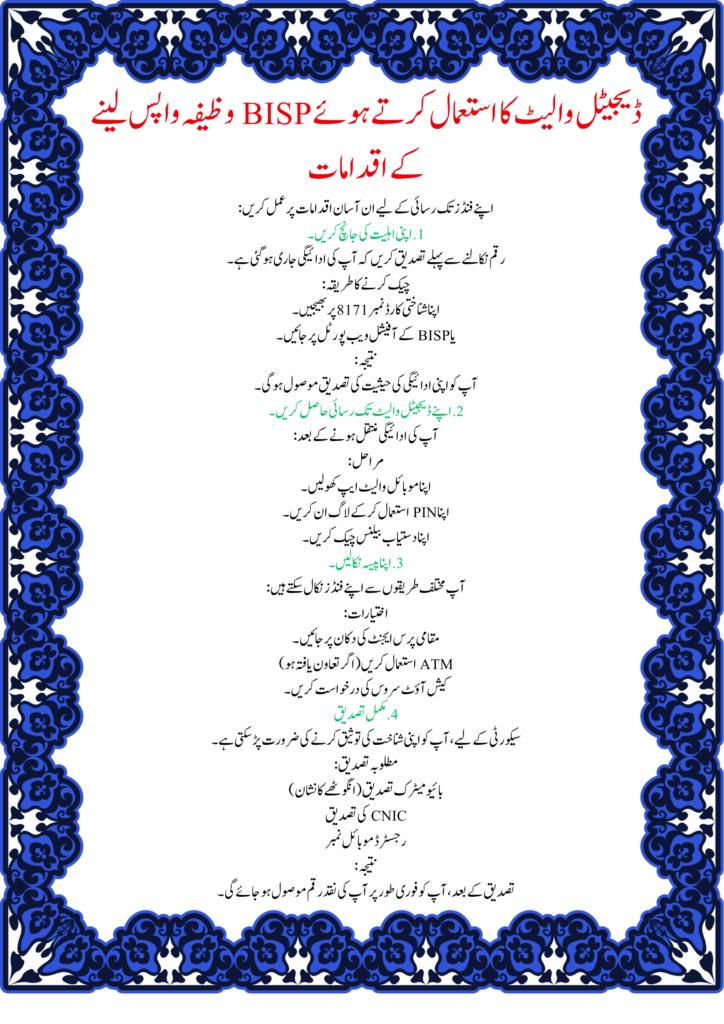 ڈیجیٹل والیٹ کا استعمال کرتے ہوئے BISP وظیفہ واپس لینے
کے اقدامات
اپنے فنڈز تک رسائی کے لیے ان آسان اقدامات پر عمل کریں:
1. اپنی اہلیت کی جانچ کریں۔
رقم نکالنے سے پہلے تصدیق کریں کہ آپ کی ادائیگی جاری ہوگئی ہے۔
چیک کرنے کا طریقہ:
اپنا شناختی کارڈ نمبر 8171 پر بھیجیں۔
یا BISP کے آفیشل ویب پورٹل پر جائیں۔
نتیجہ:
آپ کو اپنی ادائیگی کی حیثیت کی تصدیق موصول ہوگی۔
2. اپنے ڈیجیٹل والیٹ تک رسائی حاصل کریں۔
آپ کی ادائیگی منتقل ہونے کے بعد:
مراحل:
اپنا موبائل والیٹ ایپ کھولیں۔
اپنا PIN استعمال کرکے لاگ ان کریں۔
اپنا دستیاب بیلنس چیک کریں۔
3. اپنا پیسہ نکالیں۔
آپ مختلف طریقوں سے اپنے فنڈز نکال سکتے ہیں:
اختیارات:
مقامی پرس ایجنٹ کی دکان پر جائیں۔
ATM استعمال کریں (اگر تعاون یافتہ ہو)
کیش آؤٹ سروس کی درخواست کریں۔
4. مکمل تصدیق
سیکورٹی کے لیے، آپ کو اپنی شناخت کی توثیق کرنے کی ضرورت پڑسکتی ہے۔
مطلوبہ تصدیق:
بائیو میٹرک تصدیق (انگوٹھے کا نشان)
CNIC کی تصدیق
رجسٹرڈ موبائل نمبر
نتیجہ:
تصدیق کے بعد، آپ کو فوری طور پر آپ کی نقد رقم موصول ہوجائے گی۔